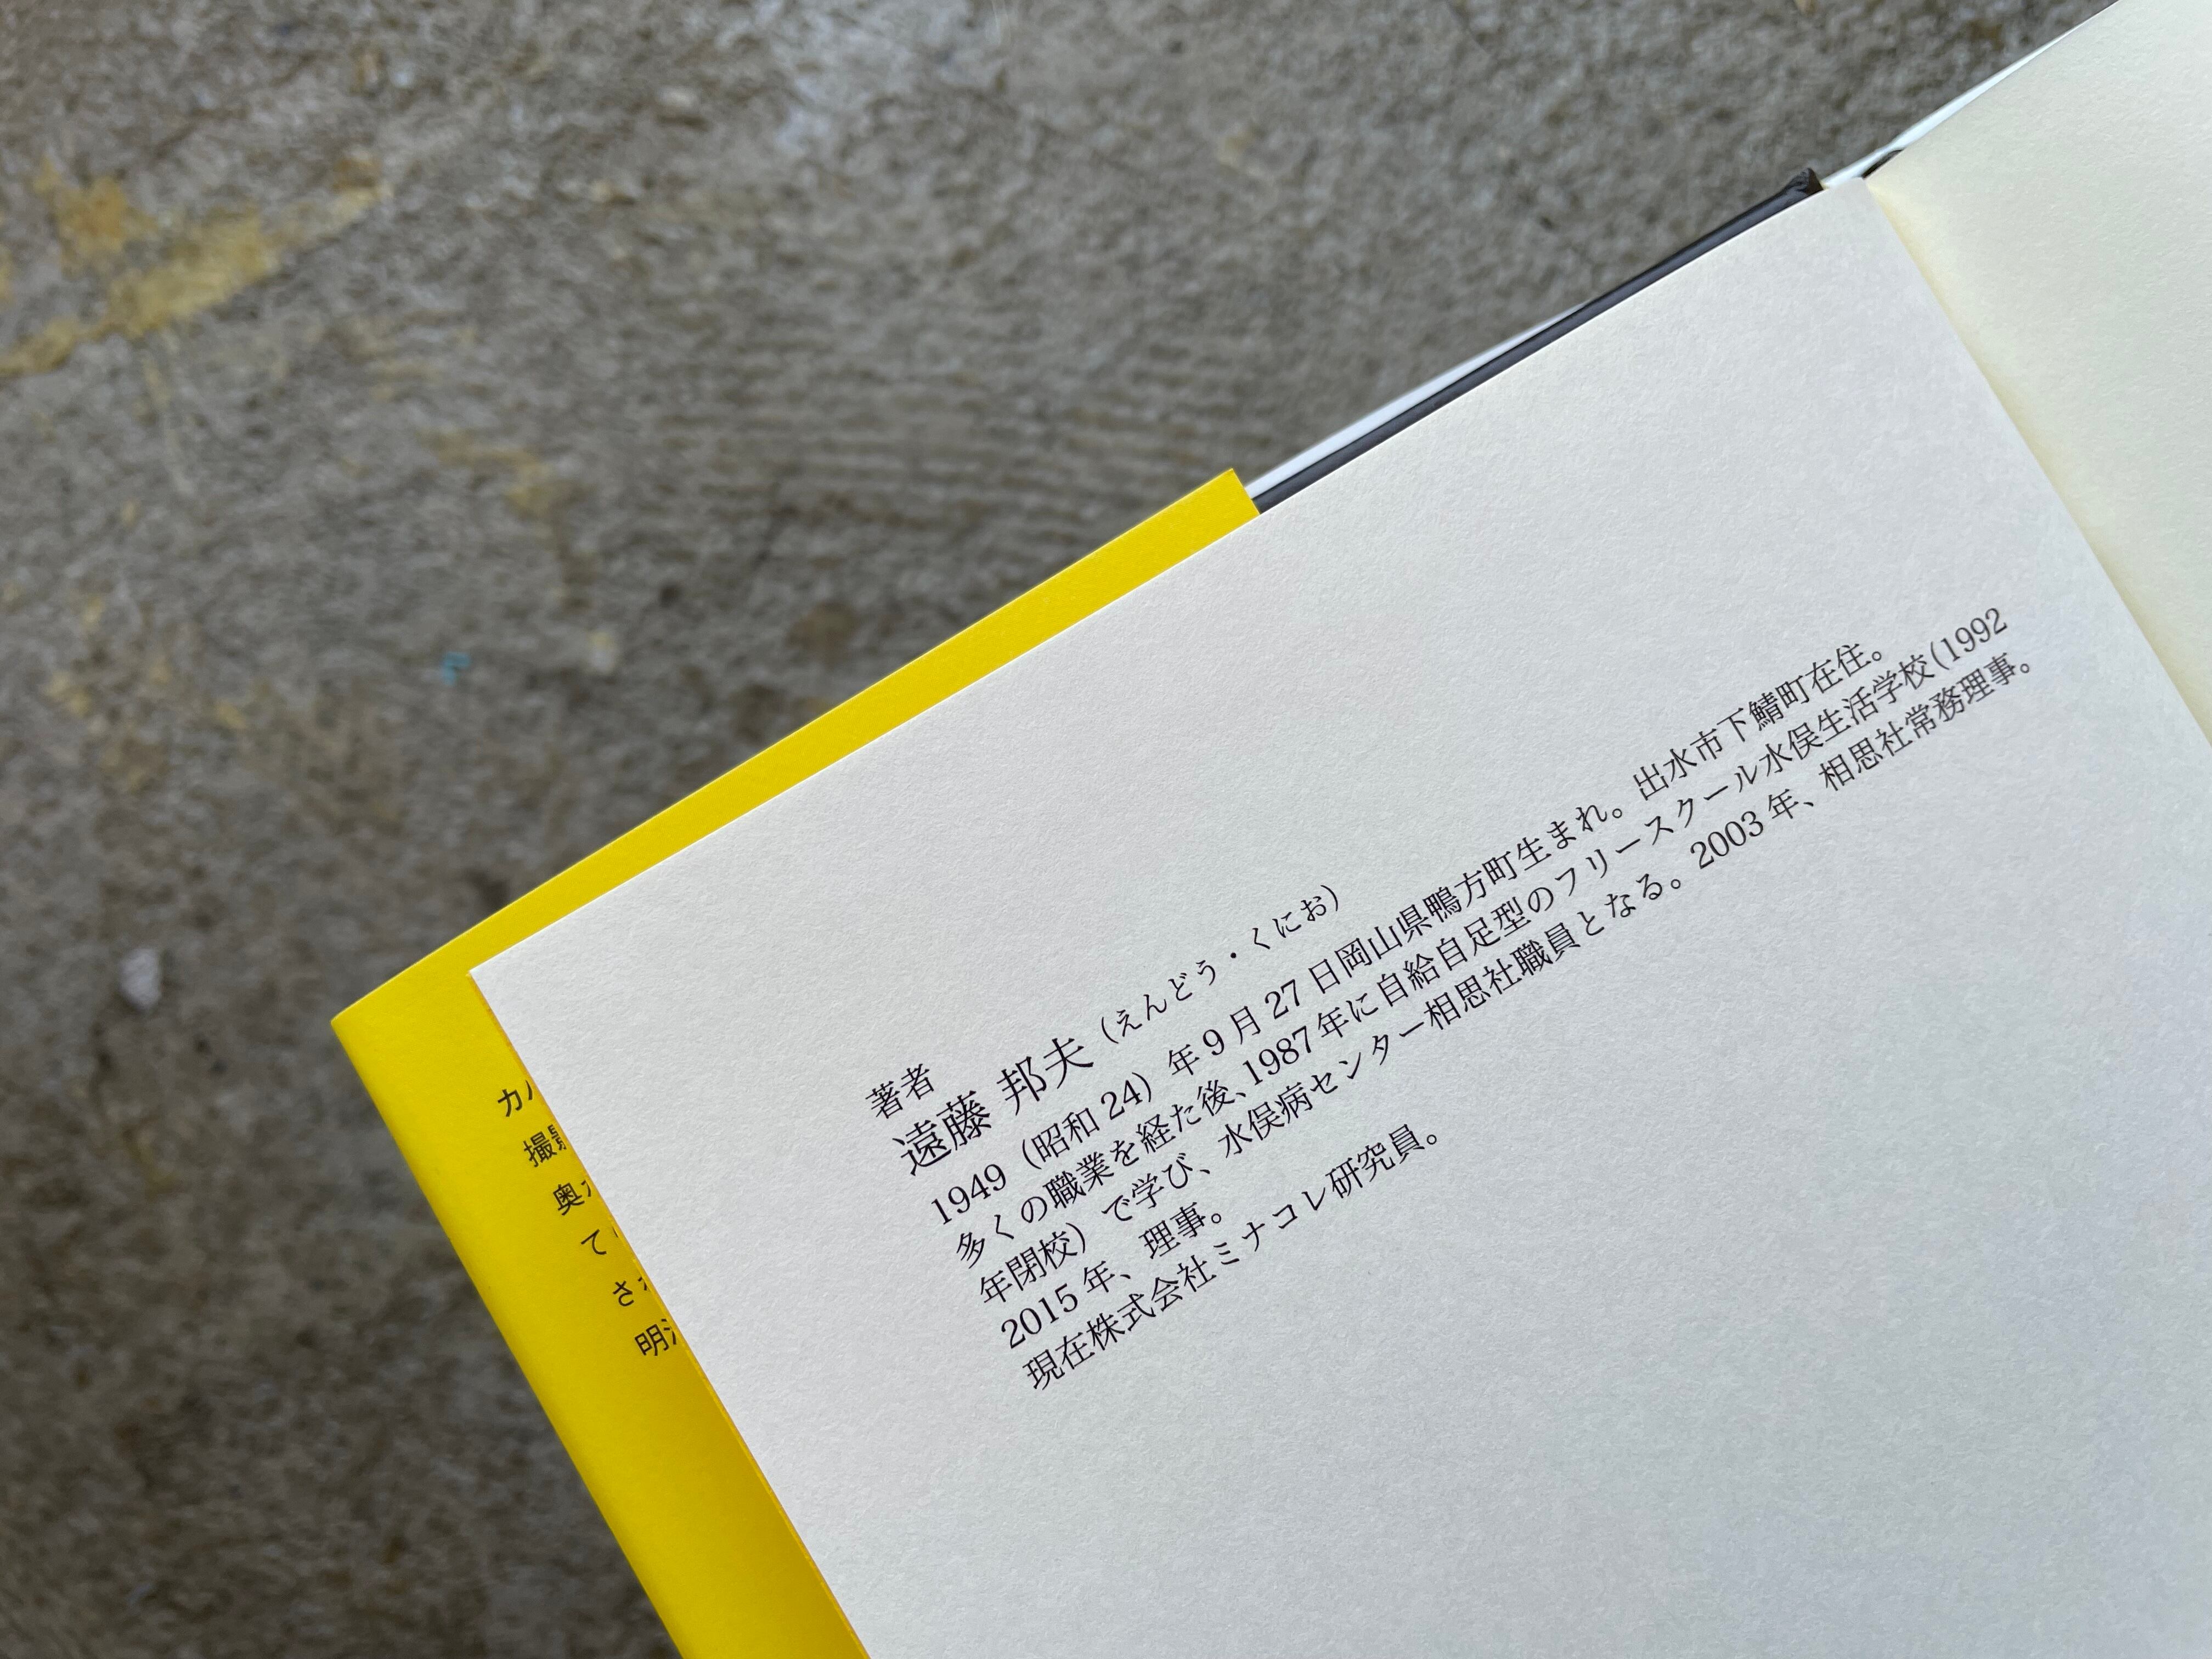 著者
遠藤 邦夫（えんどう・くにお）
1949（昭和 24）年 9 月 27 日岡山県鴨方町生まれ。出水市下鯖町在住。
多くの職業を経た後、1987年に自給自足型のフリースクール水俣生活学校(1992
年閉校）で学び、水俣病センター相思社職員となる。2003 年、相思社常務理事。
2015 年、理事。
現在株式会社ミナコレ研究員。
カ
撮影
奥
て
さ
明